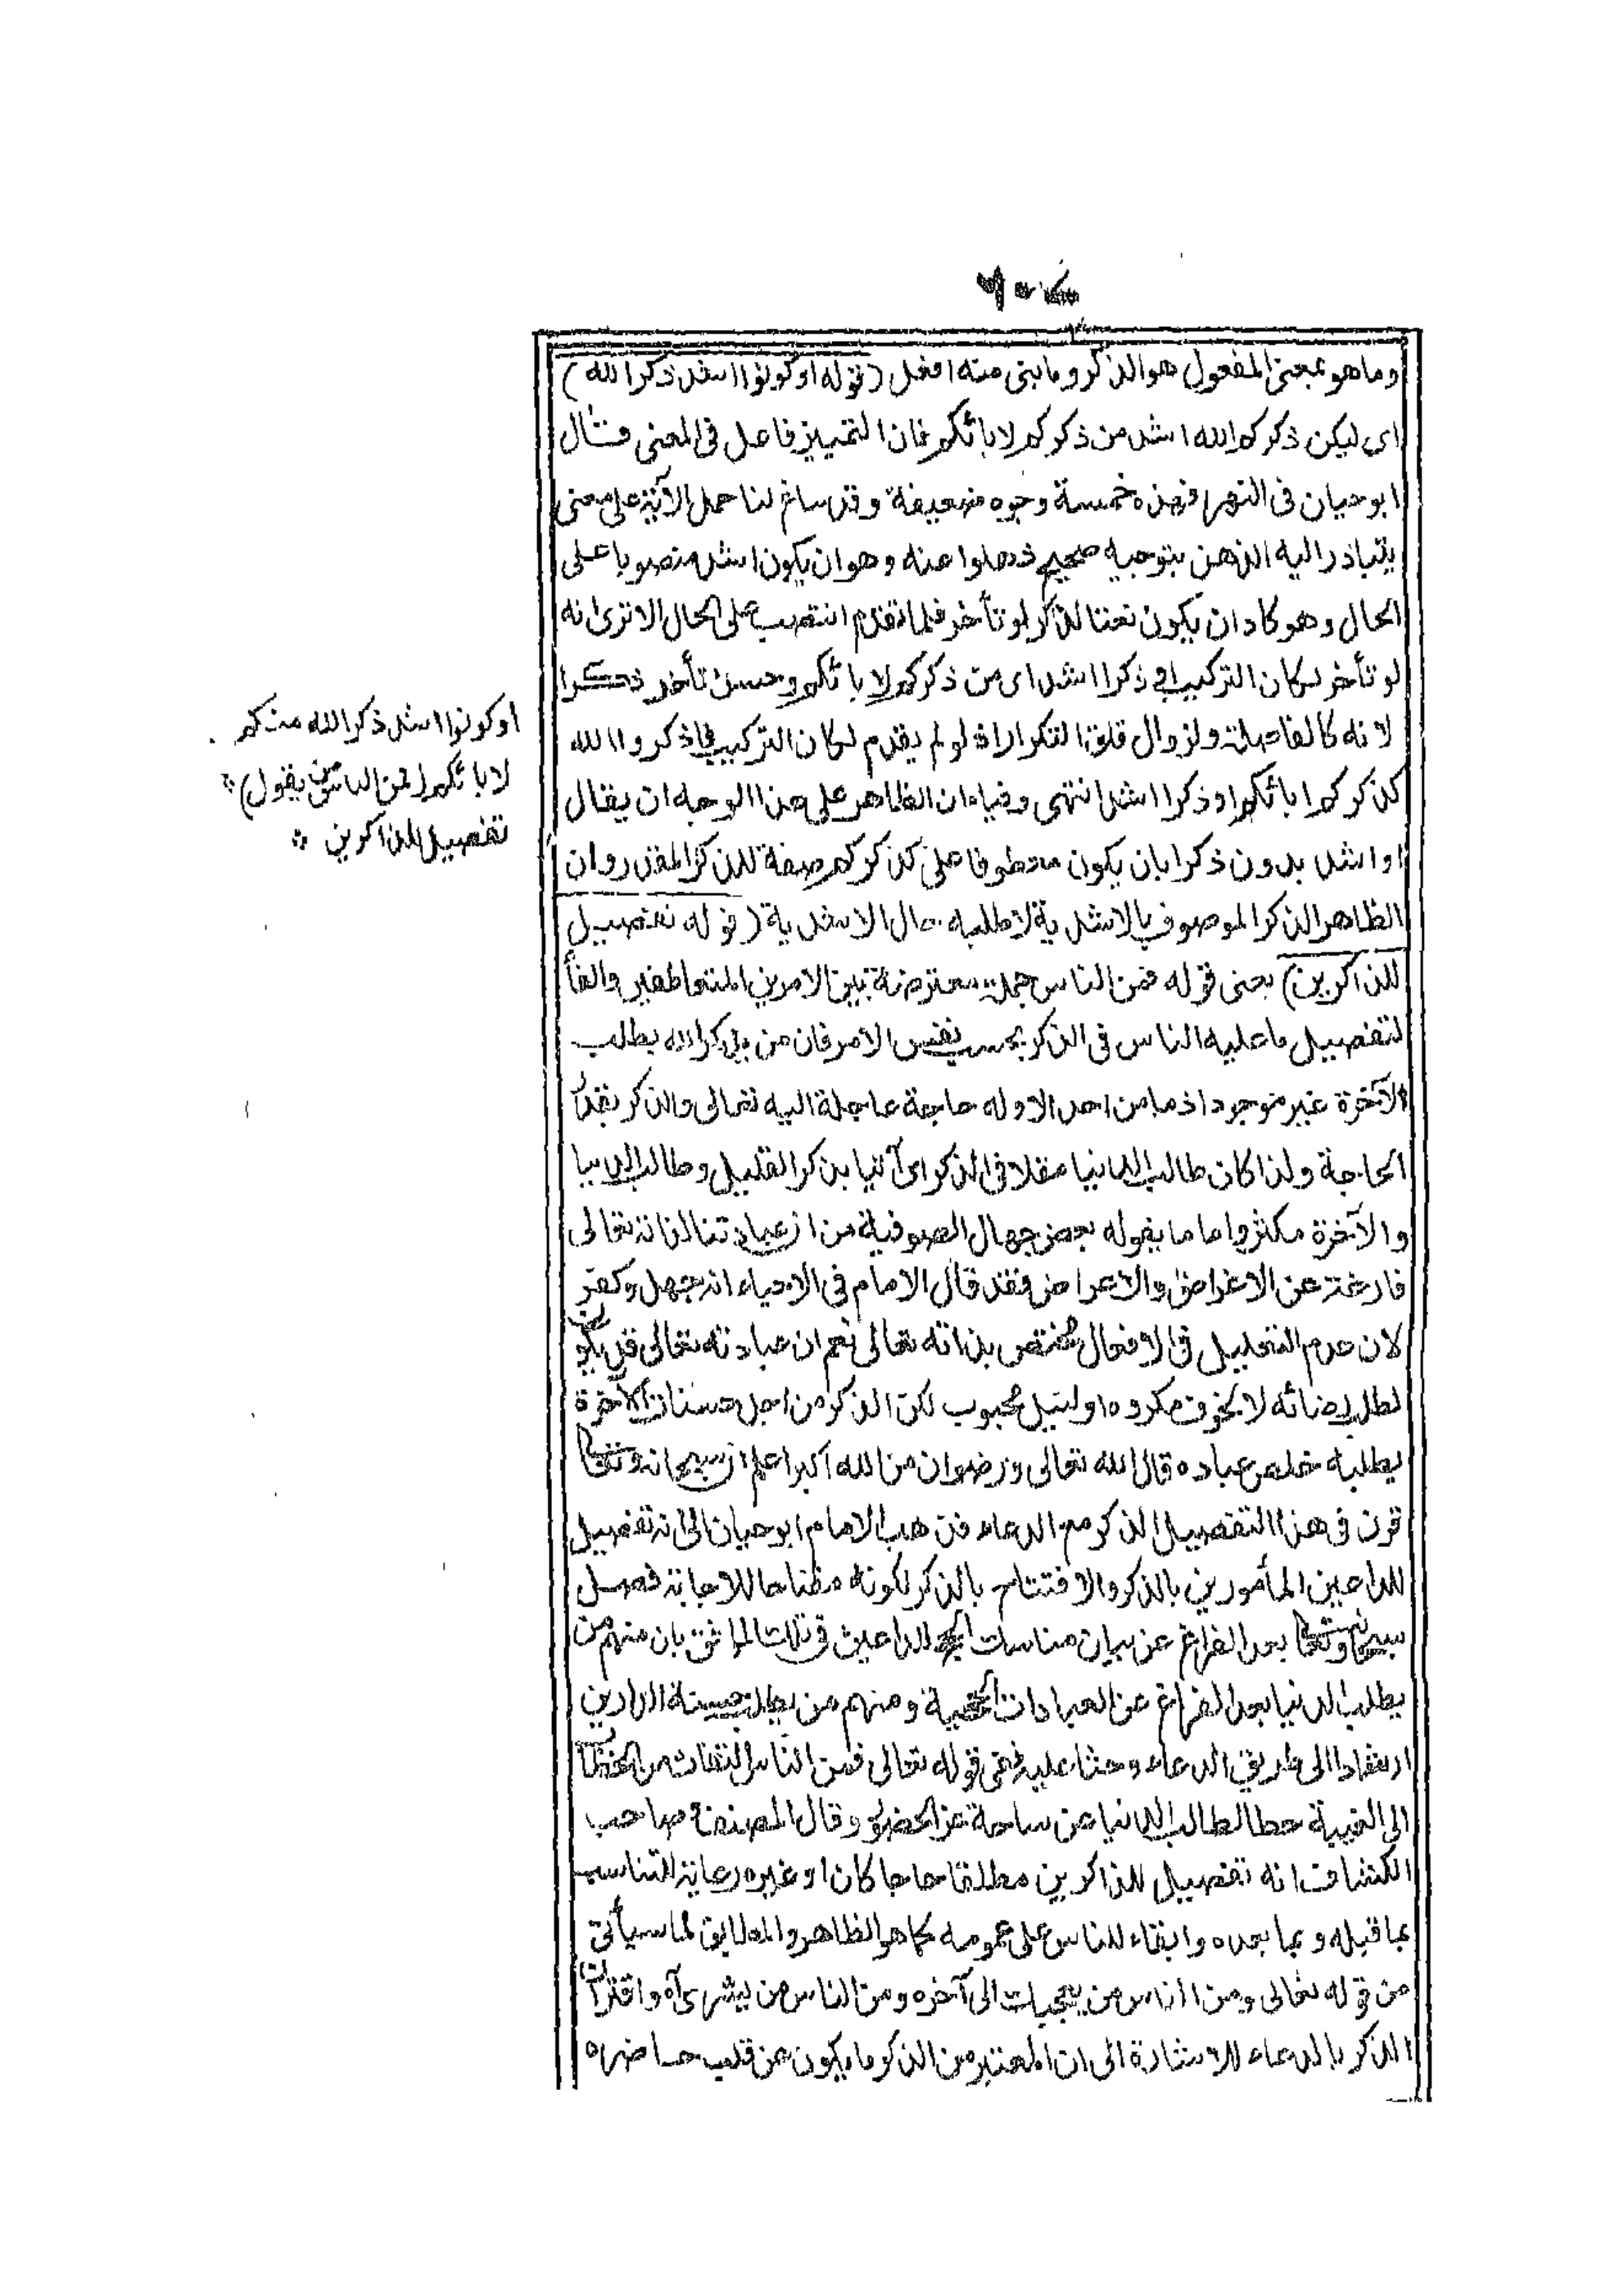 وما هو بمعنى المفعول هو الذكر وما بنى منه افعل (قوله او كونوا اشد ذكرا لله)
اى ليكن ذكركم الله اشد من ذكركم لابائكم فان التمييز فاعل فى المعنى قال
ابو حيان فى النهر فهذه خمسة وجوه ضعيفة وقد ساغ لنا حمل الآية على معنى
يتبادر اليه الذهن بتوجيه صحيح ذهلوا عنه وهو ان يكون اشد منصوبا على
الحال وهو كاد ان يكون نعتا لذكر لو تأخر فلما تقدم انتصب على الحال الا ترى انه
لو تأخر لكان التركيب او ذكرا اشد اى من ذكركم لابائكم وحسن تأخر ذكرا
لانه كالفاصلة ولزوال قلق التكرار اذ لو لم يقدم لكان التركيب فاذكروا الله
كذكركم ابائكم او ذكرا اشد انتهى وفيه ان الظاهر على هذا الوجه ان يقال
او اشد بدون ذكرا بان يكون معطوفا على كذكركم صفة للذكر المقدر وان
الظاهر الذكر الموصوف بالاشدية لا طلبه حال الاشدية (قوله تفصيل
للذاكرين) يعنى قوله فمن الناس جملة معترضة بين الامرين المتعاطفين والفأ
لتفصيل ما عليه الناس فى الذكر بحسب نفس الامر فان من يذكر الله بطلب
الآخرة غير موجود اذ ما من احد الا وله حاجة عاجلة اليه تعالى والذكر بقدر
الحاجة ولذا كان طالب الدنيا مقلا فى الذكر اى آتيا بذكر القليل وطالب الدنيا
والآخرة مكثرا واما ما يقوله بعض جهال الصوفية من ان عبادتنا لذاته تعالى
فارغة عن الاغراض والاعراض فقد قال الامام فى الاحياء انه جهل وكفر
لان عدم التعليل فى الافعال مختص بذاته تعالى نعم ان عبادته تعالى قد يكون
لطلب رضائه لا لخوف مكروه او لنيل محبوب لكن الذكر من اجل حسنات الآخرة
يطلبه خلص عباده قال الله تعالى ورضوان من الله اكبر اعلم انه سبحانه وتعالى
قرن فى هذا التفصيل الذكر مع الدعاء فذهب الامام ابو حيان الى انه تفصيل
للداعين المأمورين بالذكر والافتتاح بالذكر لكونه مفتاحا للاجابة فصل
سبحانه وتعالى بعد الفراغ عن بيان مناسك الحج الداعين فى تلك المواقف بان منهم من
يطلب الدنيا بعد الفراغ عن العبادات الحجية ومنهم من يطلب حسنة الدارين
ارشادا الى طريق الدعاء وحثا عليه ففى قوله تعالى فمن الناس التفات من الخطاب
الى الغيبة حطا لطالب الدنيا عن ساحة عز الحضور وقال المصنف صاحب
الكشاف انه تفصيل للذاكرين مطلقا حاجا كان او غيره رعاية للتناسب
بما قبله وبما بعده وابقاء للناس على عمومه كما هو الظاهر والمطابق لما سيأتى
من قوله تعالى ومن الناس من يعجبك الى آخره ومن الناس من يشرى آه واقتران
الذكر بالدعاء للاشارة الى ان المعتبر من الذكر ما يكون عن قلب حاضره
او كونوا اشد ذكرا لله منكم
لابائكم (فمن الناس من يقول)
تفصيل للذاكرين